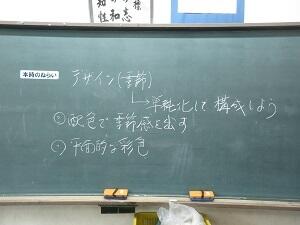 本時のねらい
デザイン(季節)
→単純化して構成しよう
・配色で季節感を出す
・平面的な彩色